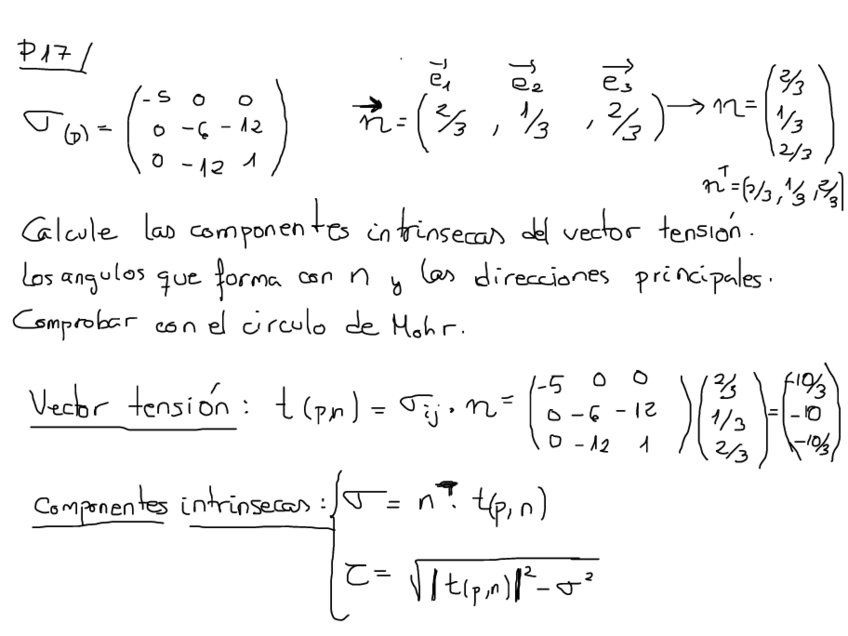 P17/
σ(p) = (-5 0 0 / 0 -6 -12 / 0 -12 1)   n⃗ = (2/3, 1/3, 2/3)  e⃗1 e⃗2 e⃗3 → n = (2/3 / 1/3 / 2/3)
nᵀ = (2/3, 1/3, 2/3)
Calcule las componentes intrinsecas del vector tensión.
Los angulos que forma con n y las direcciones principales.
Comprobar con el circulo de Mohr.
Vector tensión: t(p,n) = σij · n = (-5 0 0 / 0 -6 -12 / 0 -12 1) (2/3 / 1/3 / 2/3) = (-10/3 / -10 / -10/3)
Componentes intrinsecas: { σ = nᵀ · t(p,n)
τ = √(|t(p,n)|² - σ²)